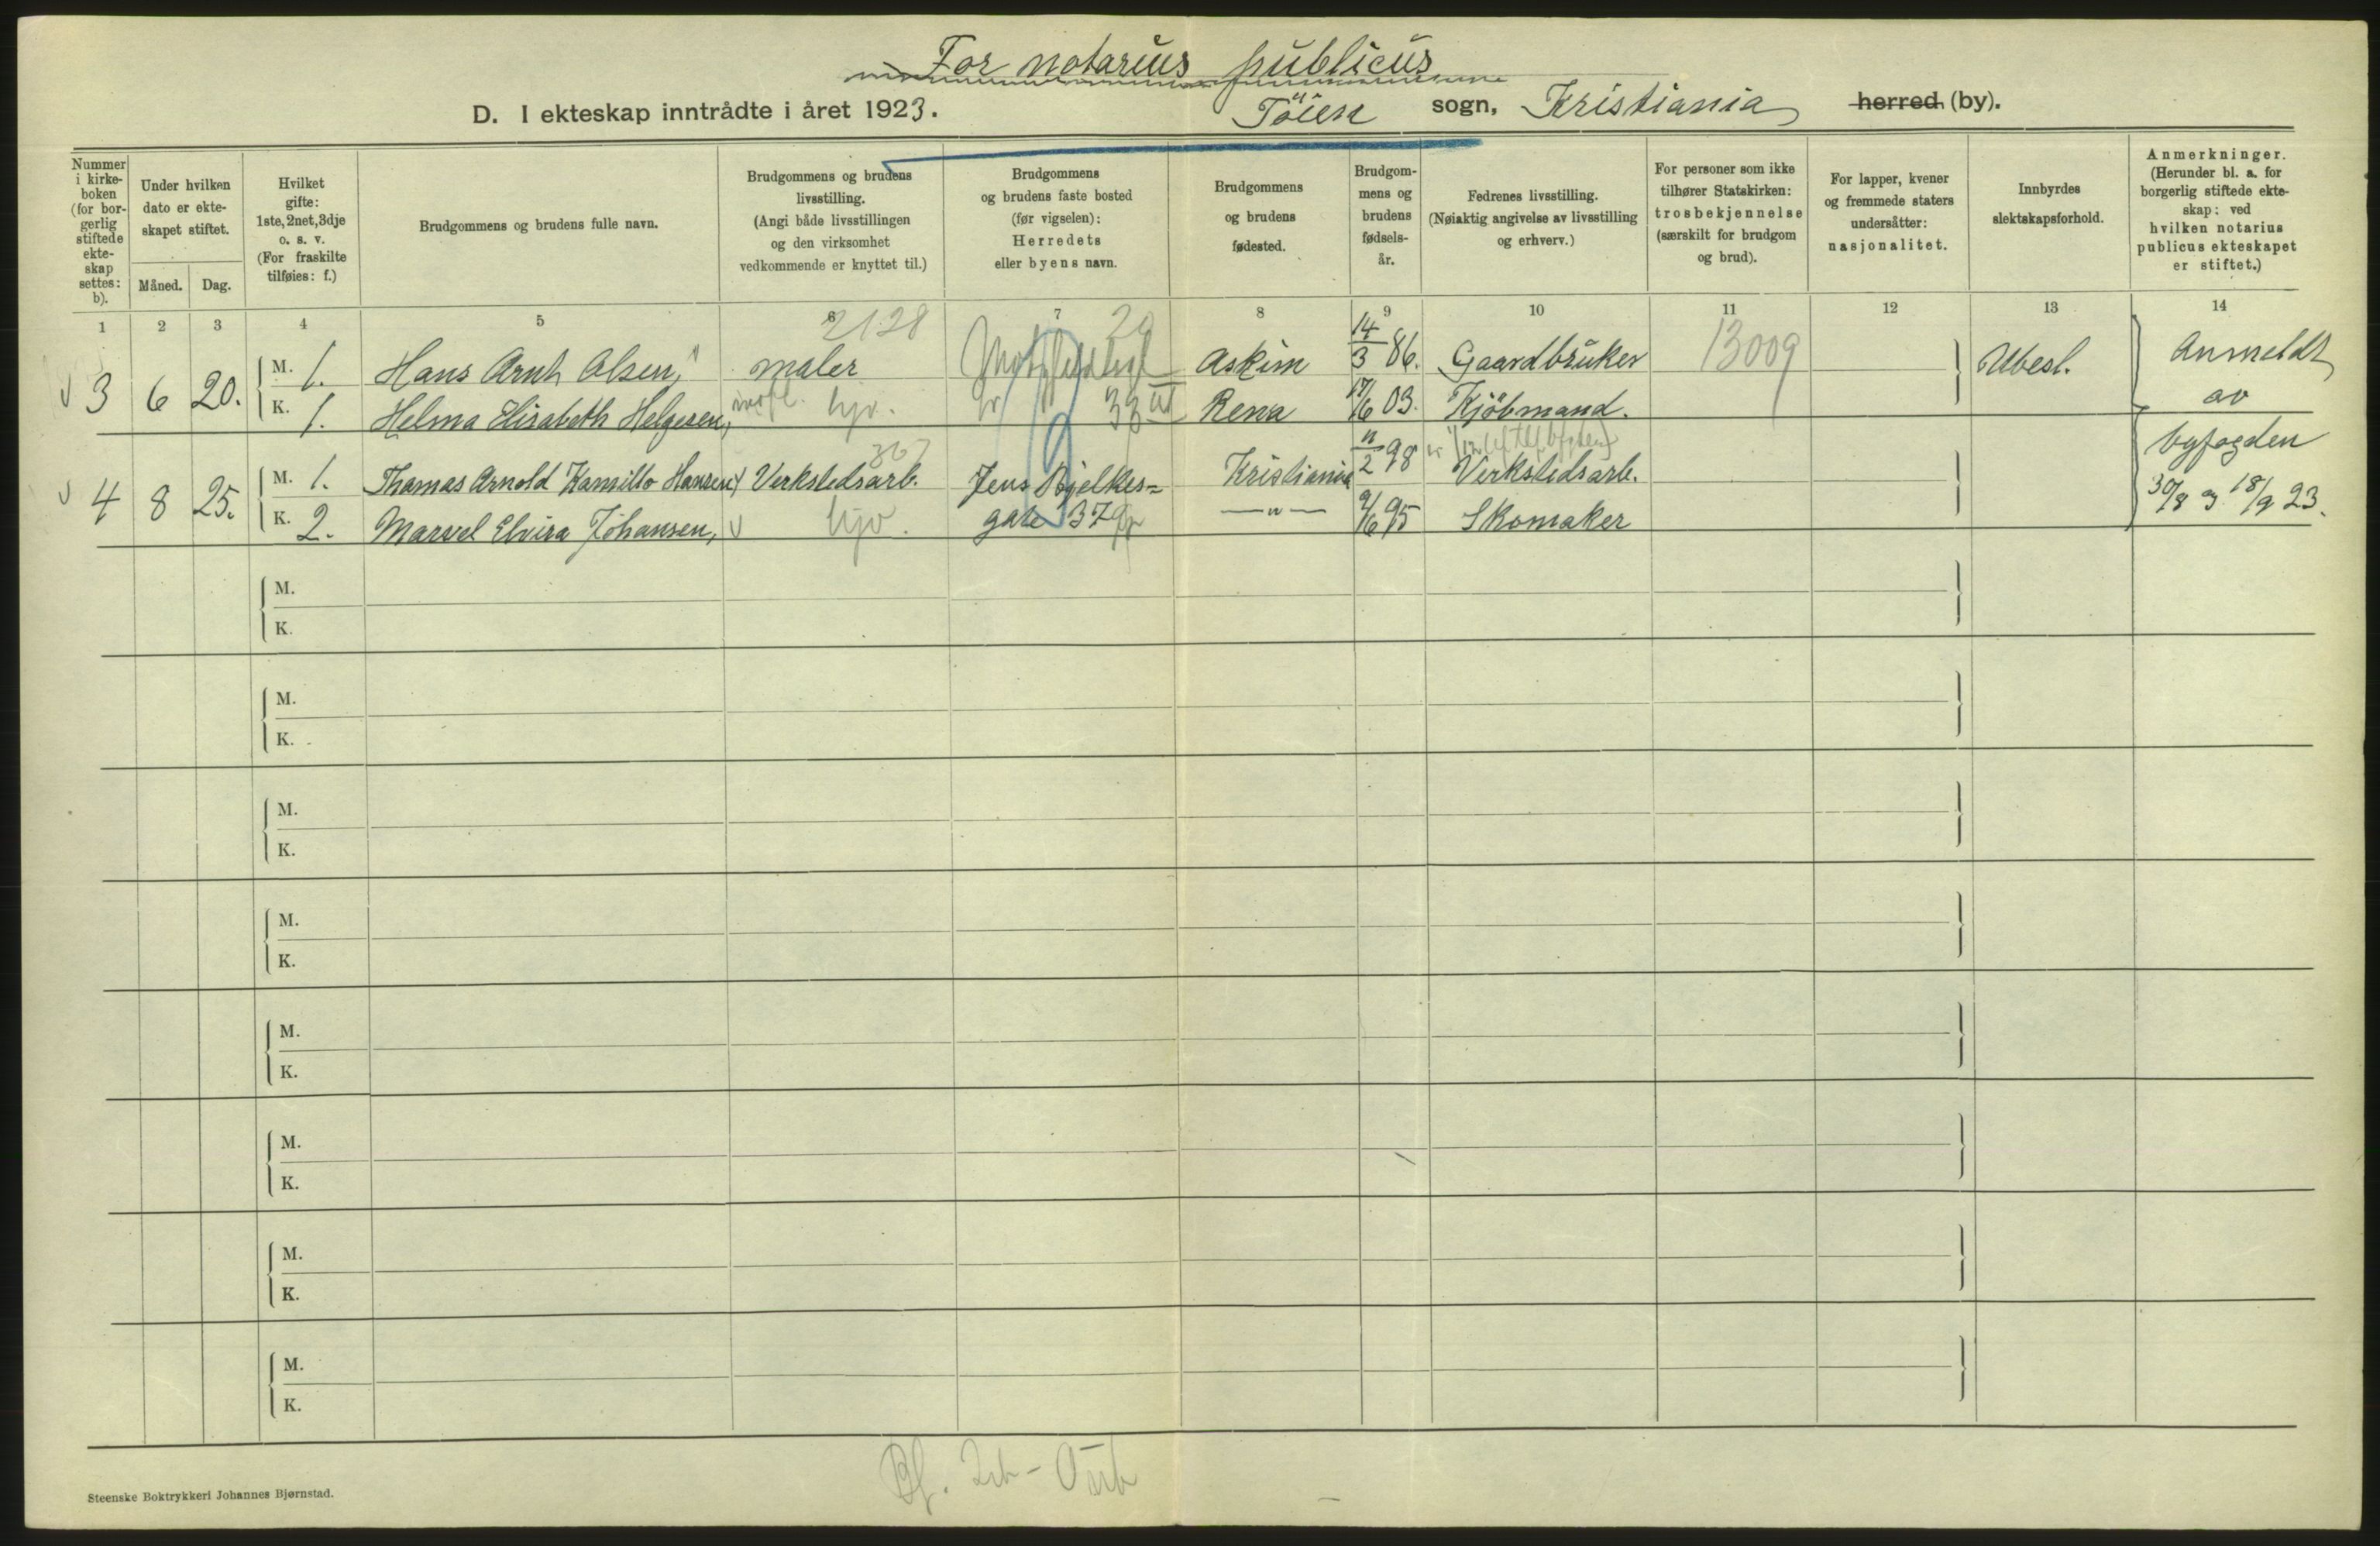 For notarius publicus
D. I ekteskap inntrådte i året 1923. Töien sogn, Kristiania herred (by).
Nummer i kirke-boken (for bor-gerlig stiftede ekte-skap settes: b).
Under hvilken dato er ekte-skapet stiftet.
Måned. Dag.
Hvilket gifte: 1ste, 2net, 3dje o. s. v. (For fraskilte tilføies: f.)
Brudgommens og brudens fulle navn.
Brudgommens og brudens livsstilling. (Angi både livsstillingen og den virksomhet vedkommende er knyttet til.)
Brudgommens og brudens faste bosted (før vigselen): Herredets eller byens navn.
Brudgommens og brudens fødested.
Brudgom-mens og brudens fødsels-år.
Fedrenes livsstilling. (Nøiaktig angivelse av livsstilling og erhverv.)
For personer som ikke tilhører Statskirken: trosbekjennelse (særskilt for brudgom og brud).
For lapper, kvener og fremmede staters undersåtter: nasjonalitet.
Innbyrdes slektskapsforhold.
Anmerkninger. (Herunder bl. a. for borgerlig stiftede ekte-skap: ved hvilken notarius publicus ekteskapet er stiftet.)
1 2 3 4 5 6 7 8 9 10 11 12 13 14
2128 29
3 6 20. M. 1. Hans Arnt Olsen, maler Askim 14/3 86. Gaardbruker 13009 Ubesl. Anmeldt
K. 1. Helma Elisabeth Helgesen, hjv. 33 III Rena 17/6 03. Kjöbmand. av
367
4 8 25. M. 1. Thomas Arnold Kamillo Hansen, Verkstedsarb. Jens Bjelkes= Kristiania 11/2 98 Verkstedsarb. byfogden
K. 2. Marvel Elvira Johansen, hjv. gate 37 —"— 9/6 95 Skomaker 30/8 og 18/9 23.
M.
K.
M.
K.
M.
K.
M.
K.
M.
K.
M.
K.
M.
K.
M.
K.
Steenske Boktrykkeri Johannes Bjørnstad.